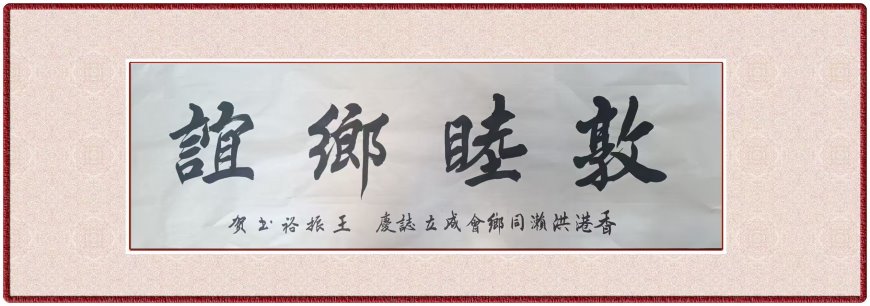 敦睦鄉誼
香港洪瀨同鄉會成立誌慶 王振裕书贺